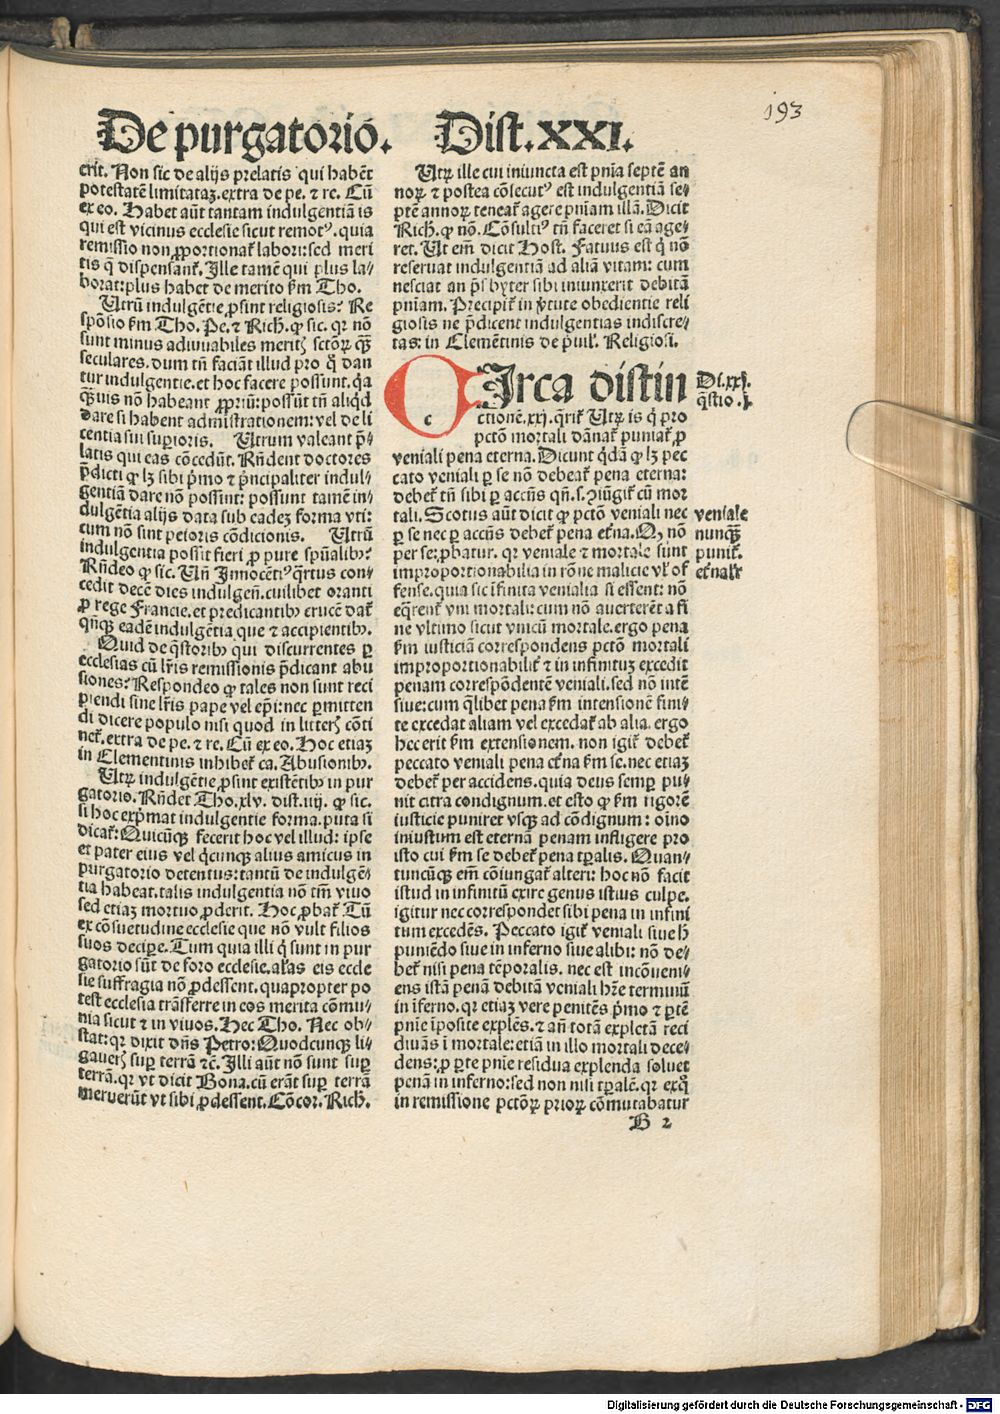 193
De purgatorio. Dist. XXI.
erit. Non sic de alijs prelatis qui habēt
potestatē limitataꝫ. extra de pe. ⁊ re. Cū
ex eo. Habet aūt tantam indulgentiā is
qui est vicinus ecclesie sicut remotꝰ. quia
remissio non ꝓportionat᷑ labori: sed meri
tis q̄ dispensant᷑. Ille tamē qui plus la⸗
borat: plus habet de merito ẜm Tho.
Utrū indulgētie ꝓsint religiosis? Re
spōsio ẜm Tho. Pe. ⁊ Rich. ꝙ sic. qꝛ nō
sunt minus adiuuabiles meritꝭ sctōꝝ qꝫ̄
seculares. dum tn̄ faciāt illud pro qͦ dan
tur indulgentie. et hoc facere possunt. qꝛ
qꝫ̄uis nō habeant ꝓpriū: possūt tn̄ aliqd
dare si habent admīstrationem: vel de li
centia sui suꝑioris. Utrum valeant p̄⸗
latis qui eas cōcedūt. Rn̄dent doctores
p̄dicti ꝙ lꝫ sibi pͥmo ⁊ pͥncipaliter indul⸗
gentiā dare nō possint: possunt tamē in⸗
dulgētia alijs data sub eadeꝫ forma vti:
cum nō sint peioris cōdicionis. Utrū
indulgentia possit fieri ꝓ pure spūalibꝰ?
Rn̄deo ꝙ sic. Un̄ Innocētiꝰ quartus con⸗
cedit decē dies indulgen̄. cuilibet oranti
ꝓ rege Francie. et predicantibꝫ crucē dat᷑
qn̄qꝫ eadē indulgētia que ⁊ accipientibꝫ.
Quid de q̄storibꝫ qui discurrentes ꝑ
ecclesias cū lr̄is remissionis p̄dicant abu
siones? Respondeo ꝙ tales non sunt reci
piendi sine lr̄is pape vel ep̄i: nec ꝑmitten
di dicere populo nisi quod in litterꝭ cōti
net᷑. extra de pe. ⁊ re. Cū ex eo. Hoc etiaꝫ
in Clementinis inhibet᷑ ca. Abusionibꝫ.
Utꝝ indulgētie ꝓsint existētibꝫ in pur
gatorio. Rn̄det Tho. xlv. dist. iiij. ꝙ sic.
si hoc expͥmat indulgentie forma. puta si
dicat᷑: Quicūqꝫ fecerit hoc vel illud: ipse
et pater eius vel qͥcunqꝫ alius amicus in
purgatorio detentus: tantū de indulgē⸗
tia habeat. talis indulgentia nō tm̄ viuo
sed etiaꝫ mortuo ꝓderit. Hoc ꝓbat᷑. Tū
ex cōsuetudine ecclesie que nō vult filios
suos deciꝑe. Tum quia illi qͥ sunt in pur
gatorio sūt de foro ecclesie. al̓as eis eccle
sie suffragia nō ꝓdessent. quapropter po
test ecclesia trāsferre in eos merita cōmu⸗
nia sicut ⁊ in viuos. Hec Tho. Nec ob⸗
stat: qꝛ dixit dn̄s Petro: Quodcunqꝫ li⸗
gauerꝭ suꝑ terrā ⁊c̄. Illi aūt nō sunt suꝑ
terrā. qꝛ vt dicit Bona. cū erāt suꝑ terrā
meruerūt vt sibi ꝓdessent. Cōcor. Rich.
Utꝝ ille cui iniuncta est pn̄ia septē an
noꝝ ⁊ postea cōsecutꝰ est indulgentiā se⸗
ptē annoꝝ teneat᷑ agere pn̄iam illā. Dicit
Rich. ꝙ nō. Cōsultiꝰ tn̄ faceret si eā age⸗
ret. Ut em̄ dicit Host. Fatuus est qͥ nō
reseruat indulgentiā ad aliā vitam: cum
nesciat an p̄sbyter sibi iniunxerit debitā
pn̄iam. Precipit᷑ in ṽtute obedientie reli
giosis ne p̄dicent indulgentias indiscre⸗
tas: in Clementinis de pͥuil. Religiosi.
c
CIrca distin
ctionē. xxj. q̄rit᷑ Utꝝ is qͥ pro
pctōm mortali dānat᷑ puniat᷑ ꝓ
veniali pena eterna. Dicunt qͥdā ꝙ lꝫ pec
cato veniali ꝑ se nō debeat᷑ pena eterna:
debet᷑ tn̄ sibi ꝑ accn̄s qn̄. s. ꝯiūgit᷑ cū mor
tali. Scotus aūt dicit ꝙ pctōm veniali nec
ꝑ se nec ꝑ accn̄s debet᷑ pena et̓na. Qꝫ nō
per se: ꝓbatur. qꝛ veniale ⁊ mortale sunt
improportionabilia in rōne malicie vl̓ of
fense. quia sic īfinita venialia si essent: nō
eq̄rent᷑ vni mortali: cum nō auerterēt a fi
ne vltimo sicut vnicū mortale. ergo pena
ẜm iusticiā correspondens pctōo mortali
improportionabilit᷑ ⁊ in infinitū excedit
penam correspōdentē veniali. sed nō intē
siue: cum q̄libet pena ẜm intensionē fini⸗
te excedat aliam vel excedat᷑ ab alia. ergo
hec erit ẜm extensionem. non igit᷑ debet᷑
peccato veniali pena et̓na ẜm se. nec etiaꝫ
debet᷑ per accidens. quia deus semꝑ pu⸗
nit citra condignum. et esto ꝙ ẜm rigorē
iusticie puniret vsqꝫ ad cōdignum: oīno
iniustum est eternā penam infligere pro
isto cui ẜm se debet᷑ pena tꝑalis. Quan⸗
tuncūqꝫ em̄ cōiungat᷑ alteri: hoc nō facit
istud in infinitū exire genus istius culpe.
igitur nec correspondet sibi pena in infini
tum excedēs. Peccato igit᷑ veniali siue h̄
puniēdo siue in inferno siue alibi: nō de⸗
bet᷑ nisi pena tēporalis. nec est incōueni⸗
ens istā penā debitā veniali hr̄e terminū
in īferno. qꝛ etiaꝫ vere penitēs pͥmo ⁊ ꝑtē
pn̄ie īposite explēs. ⁊ an̄ totā expletā reci
diuās ī mortale: etiā in illo mortali dece⸗
dens: ꝓ ꝑte pn̄ie residua explenda soluet
penā in inferno: sed non nisi tꝑalē. qꝛ ex quo
in remissione pctōꝝ prioꝝ cōmutabatur
B 2
Di. xxj.
q̄stio. j.
veniale
nunqꝫ̄
punit᷑.
et̓nalr̄
Digitalisierung gefördert durch die Deutsche Forschungsgemeinschaft - DFG